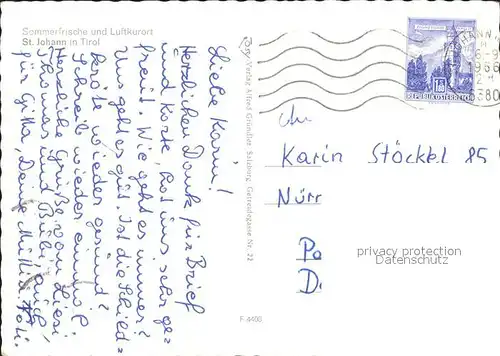 Sommerfrische und Luftkurort
St. Johann in Tirol
Liebe Karin!
Herzlichen Dank für Brief
und Karte, hat uns sehr ge=
freut. Wie geht es immer?
Uns geht es gut. Ist die Schild=
kröte wieder gesund?
Schreib wieder einmal
Herzliche Grüße von Liesi,
Thomas und Bubi, auch
für Gitta, Deine Mutti
Verlag Alfred Gründler, Salzburg, Getreidegasse Nr. 22
F 4400
REPUBLIK ÖSTERREICH
1968
380
An
Karin Stöckel 85
Nürr
Po
D.
privacy protection
Datenschutz